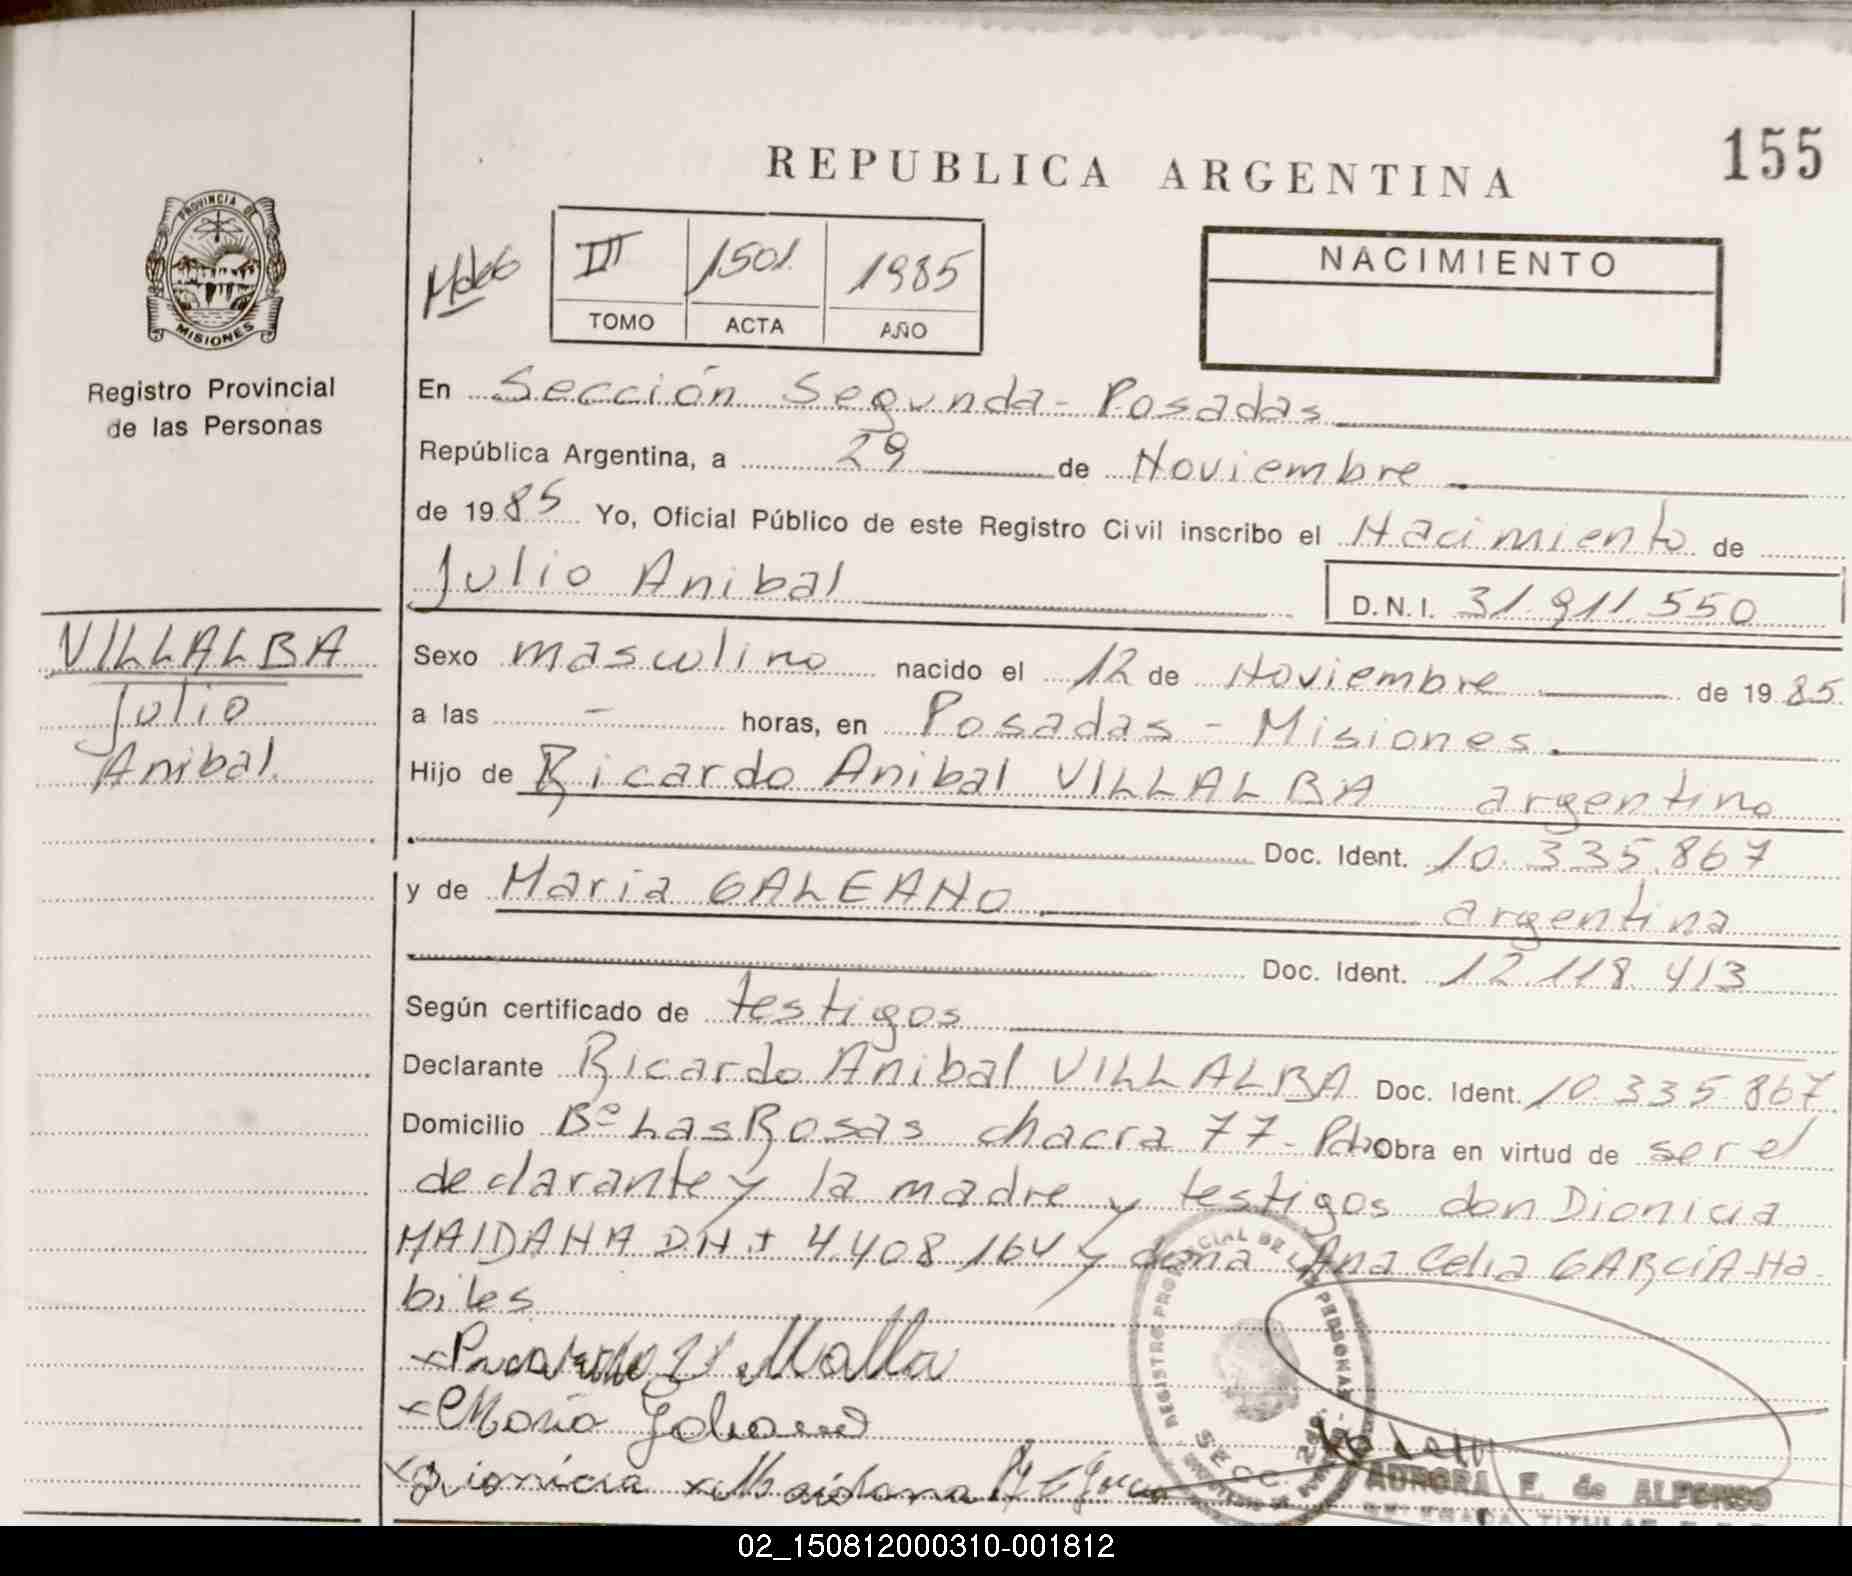 155
REPUBLICA ARGENTINA
PROVINCIA DE
MISIONES
Registro Provincial
de las Personas
III 1501 1985
TOMO ACTA AÑO
NACIMIENTO
En Sección Segunda - Posadas
República Argentina, a 29 de Noviembre
de 1985 Yo, Oficial Público de este Registro Civil inscribo el Nacimiento de
Julio Anibal
D.N.I. 31.911.550
VILLALBA
Julio
Anibal
Sexo masculino nacido el 12 de Noviembre de 1985
a las - horas, en Posadas - Misiones.
Hijo de Ricardo Anibal VILLALBA argentino
Doc. Ident. 10.335.867
y de Maria GALEANO argentina
Doc. Ident. 12.118.413
Según certificado de testigos
Declarante Ricardo Anibal VILLALBA Doc. Ident. 10.335.867
Domicilio Bº Las Rosas chacra 77 - Obra en virtud de ser el
declarante y la madre y testigos don Dionicia
MAIDANA 4.408.164 y doña Ana Celia GARCIA Ha
biles
Maria
Dionicia Maidana
REGISTRO PROVINCIAL DE PERSONAS
SECC.
AURORA E. de ALFONSO
02_150812000310-001812